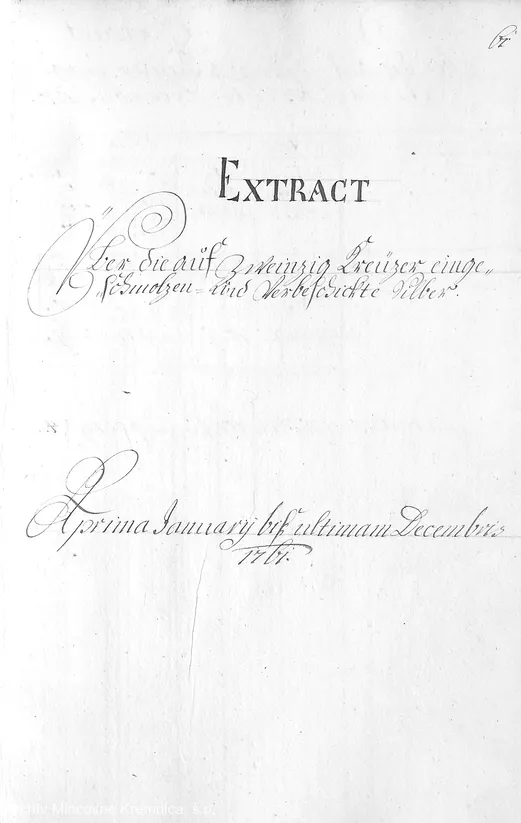 EXTRACT
Über die auf Zweinzig Kreüzer einge„
„schmolzen= und Verbeschickte Silber.
A prima January biß ultimam Decembris
1761.
Archív Mincovne Kremnica, š.p.